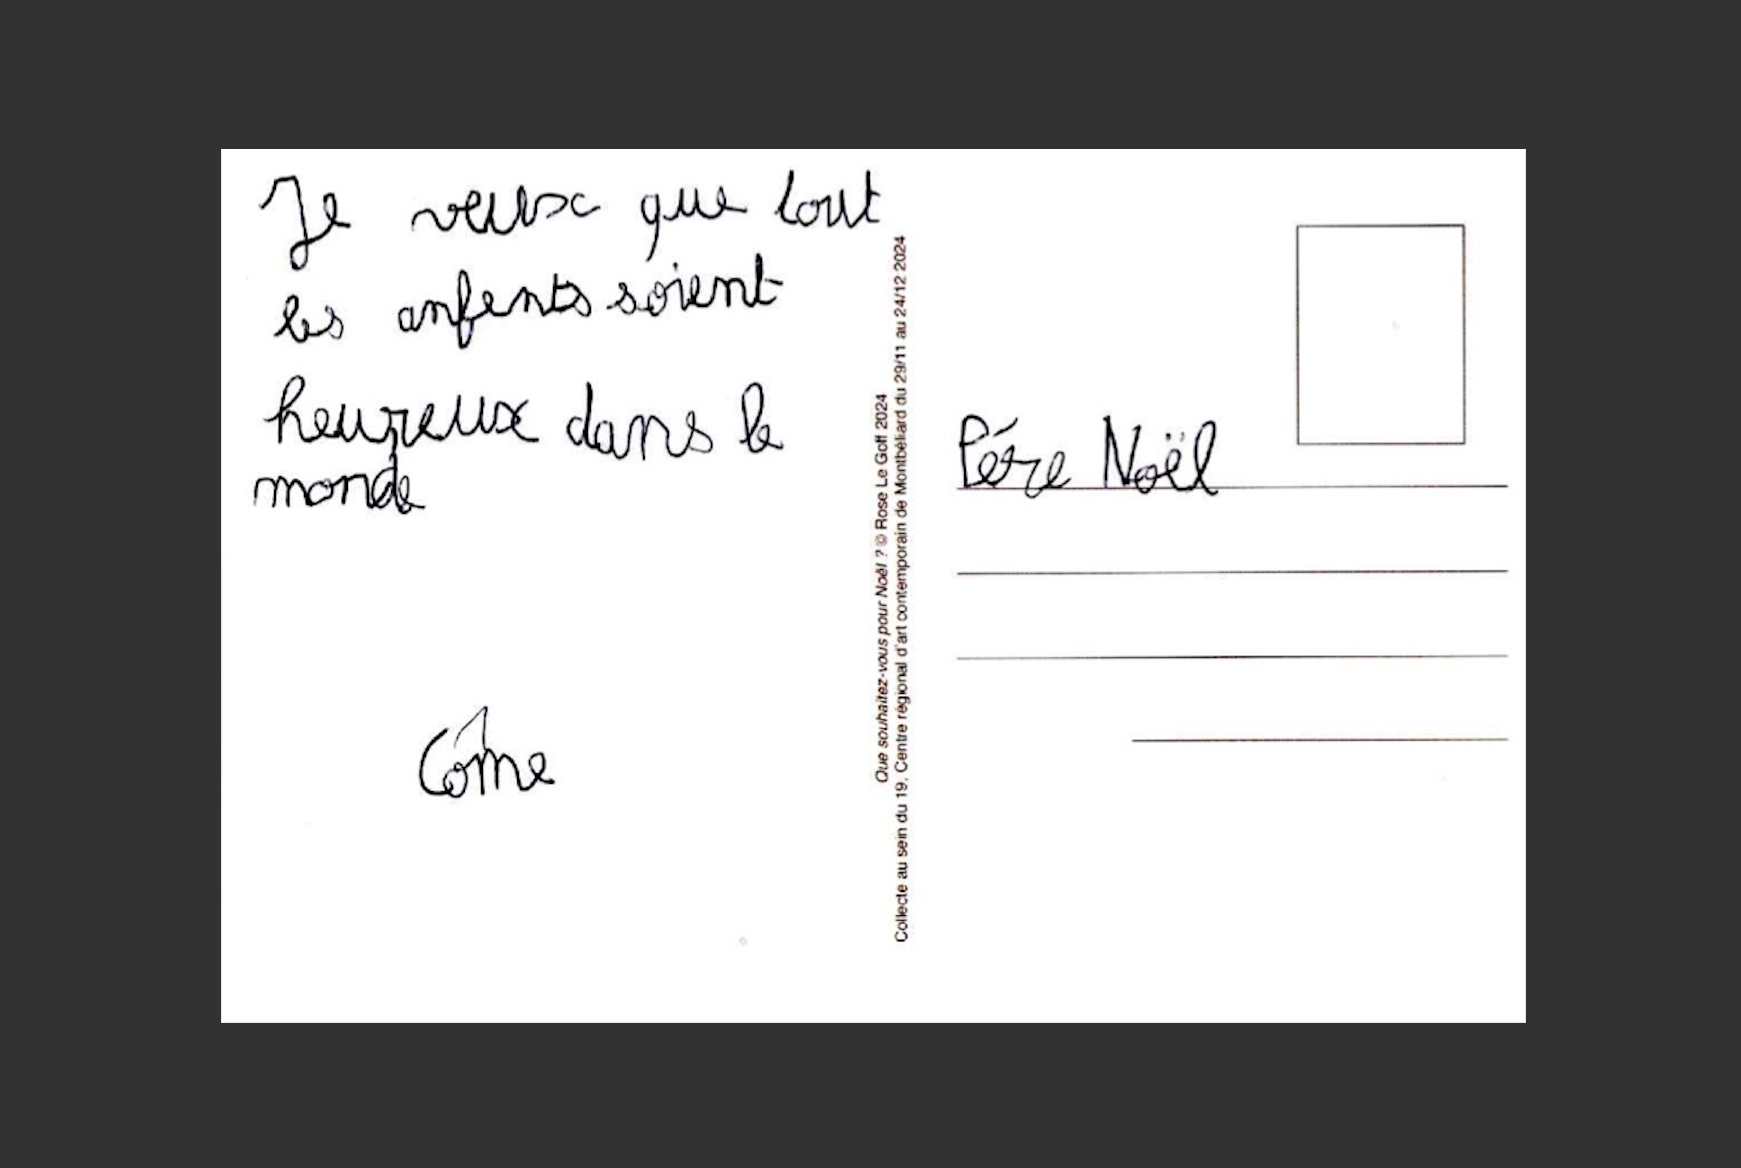 Je veux que tout
les anfents soient
heureux dans le
monde
Côme
Que souhaitez-vous pour Noël ? © Rose Le Goff 2024
Collecte au sein du 19, Centre régional d'art contemporain de Montbéliard du 29/11 au 24/12 2024
Pére Noël